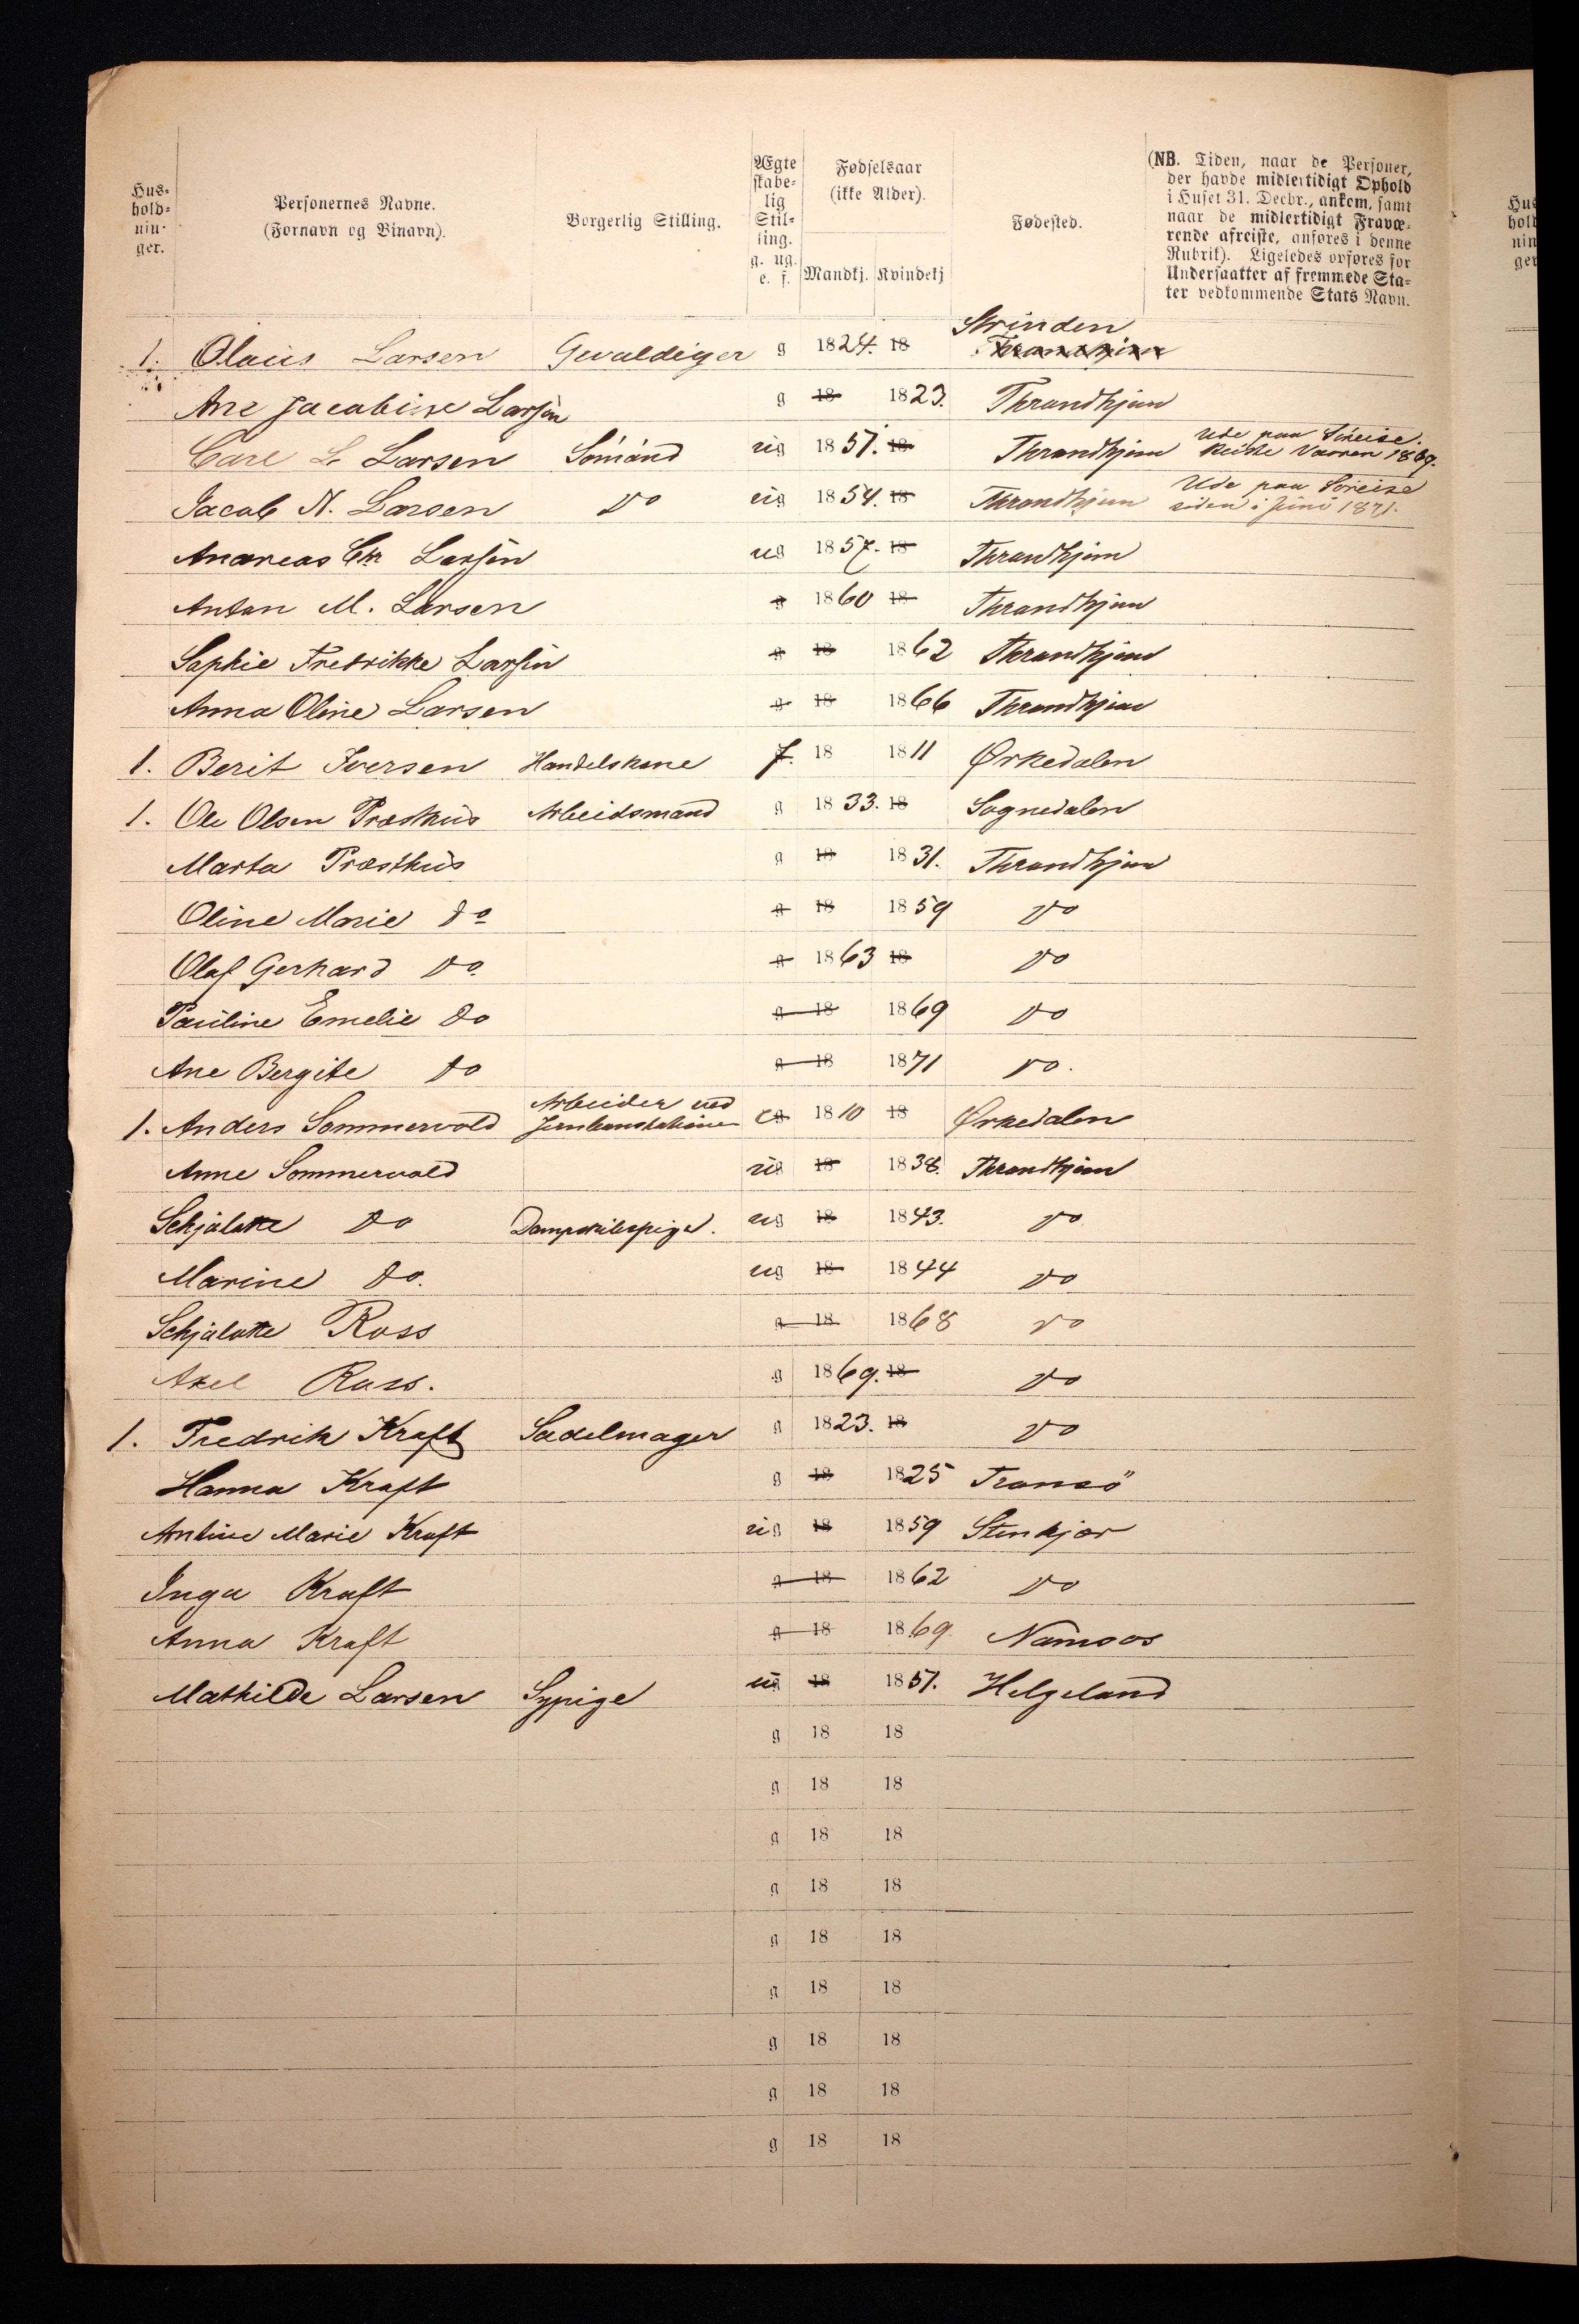 Hus-
hold-
nin-
ger.
Personernes Navne.
(Fornavn og Binavn).
Borgerlig Stilling.
Ægte
skabe-
lig
Stil-
ling.
g. ug.
e. f.
Fødselsaar
(ikke Alder).
Mandkj. Kvindekj
Fødested.
(NB. Tiden, naar de Personer,
der havde midlertidigt Ophold
i Huset 31. Decbr., ankom, samt
naar de midlertidigt Fravæ-
rende afreiste, anføres i denne
Rubrik). Ligeledes orføres for
Undersaatter af fremmede Sta-
ter vedkommende Stats Navn.
Strinden
1. Olaus Larsen Gevaldiger g 1824. 18 Throndhjem
Ane Jacobine Larsen g 18 1823. Throndhjem
Carl L. Larsen Sømand ug 1851. 18 Throndhjem Ude paa Søreise. Reiste Vaaren 1869.
Jacob N. Larsen do ug 1854. 18 Throndhjem Ude paa Søreise siden i Juni 1871.
Andreas Chr Larsen ug 1857. 18 Throndhjem
Anton M. Larsen g 1860 18 Throndhjem
Sophie Fredrikke Larsen g 18 1862 Throndhjem
Anna Oline Larsen g 18 1866 Throndhjem
1. Berit Iversen Handelskone f. 18 1811 Ørkedalen
1. Ole Olsen Præsthus Arbeidsmand g 1833. 18 Sognedalen
Marta Præsthus g 18 1831. Throndhjem
Oline Marie do g 18 1859 do
Olaf Gerhard do. g 1863 18 do
Pauline Emelie do g 18 1869 do
Ane Bergite do g 18 1871 do.
1. Anders Sommervold Arbeider ved Jernbanestationen e 1810 18 Ørkedalen
Anne Sommervold ug 18 1838. Throndhjem
Schjalotte do Dampskibspige. ug 18 1843. do
Marine do. ug 18 1844 do
Schjalotte Ross g 18 1868 do
Axel Ross. g 1869. 18 do
1. Fredrik Kraft Sadelmager g 1823. 18 do
Hanna Kraft g 18 1825 Tromsö
Antine Marie Kraft ug 18 1859 Stenkjær
Inga Kraft g 18 1862 do
Anna Kraft g 18 1869. Namsos
Mathilde Larsen Sypige ug 18 1851. Helgeland
g 18 18
g 18 18
g 18 18
g 18 18
g 18 18
g 18 18
g 18 18
g 18 18
g 18 18
Hus
hold
nin
ger